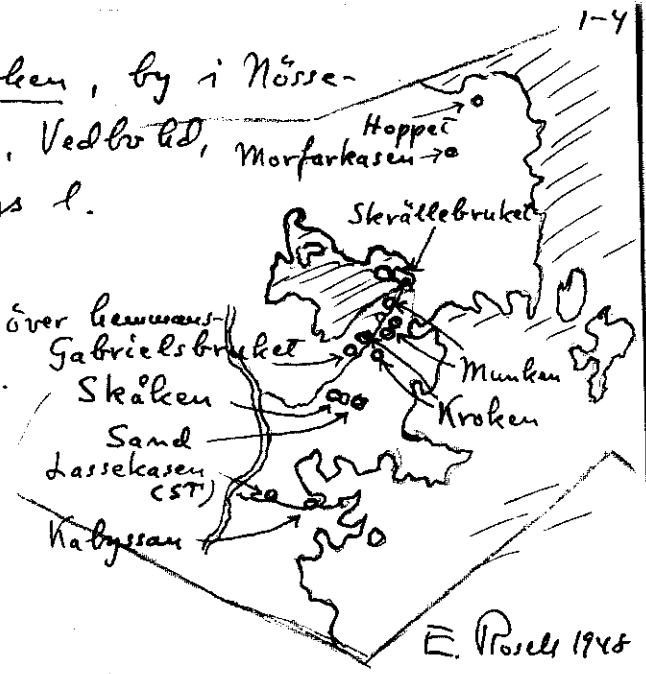 1-4
ken, by i Nösse-
, Vedbo hd,
s l.
Hoppet
Morfarkasen
Skrällebruket
över hemmans-
Gabrielsbruket
Skåken
Munken
Kroken
Sand
Lassekasen
(ST)
Kabyssan
E. Rosell 1948